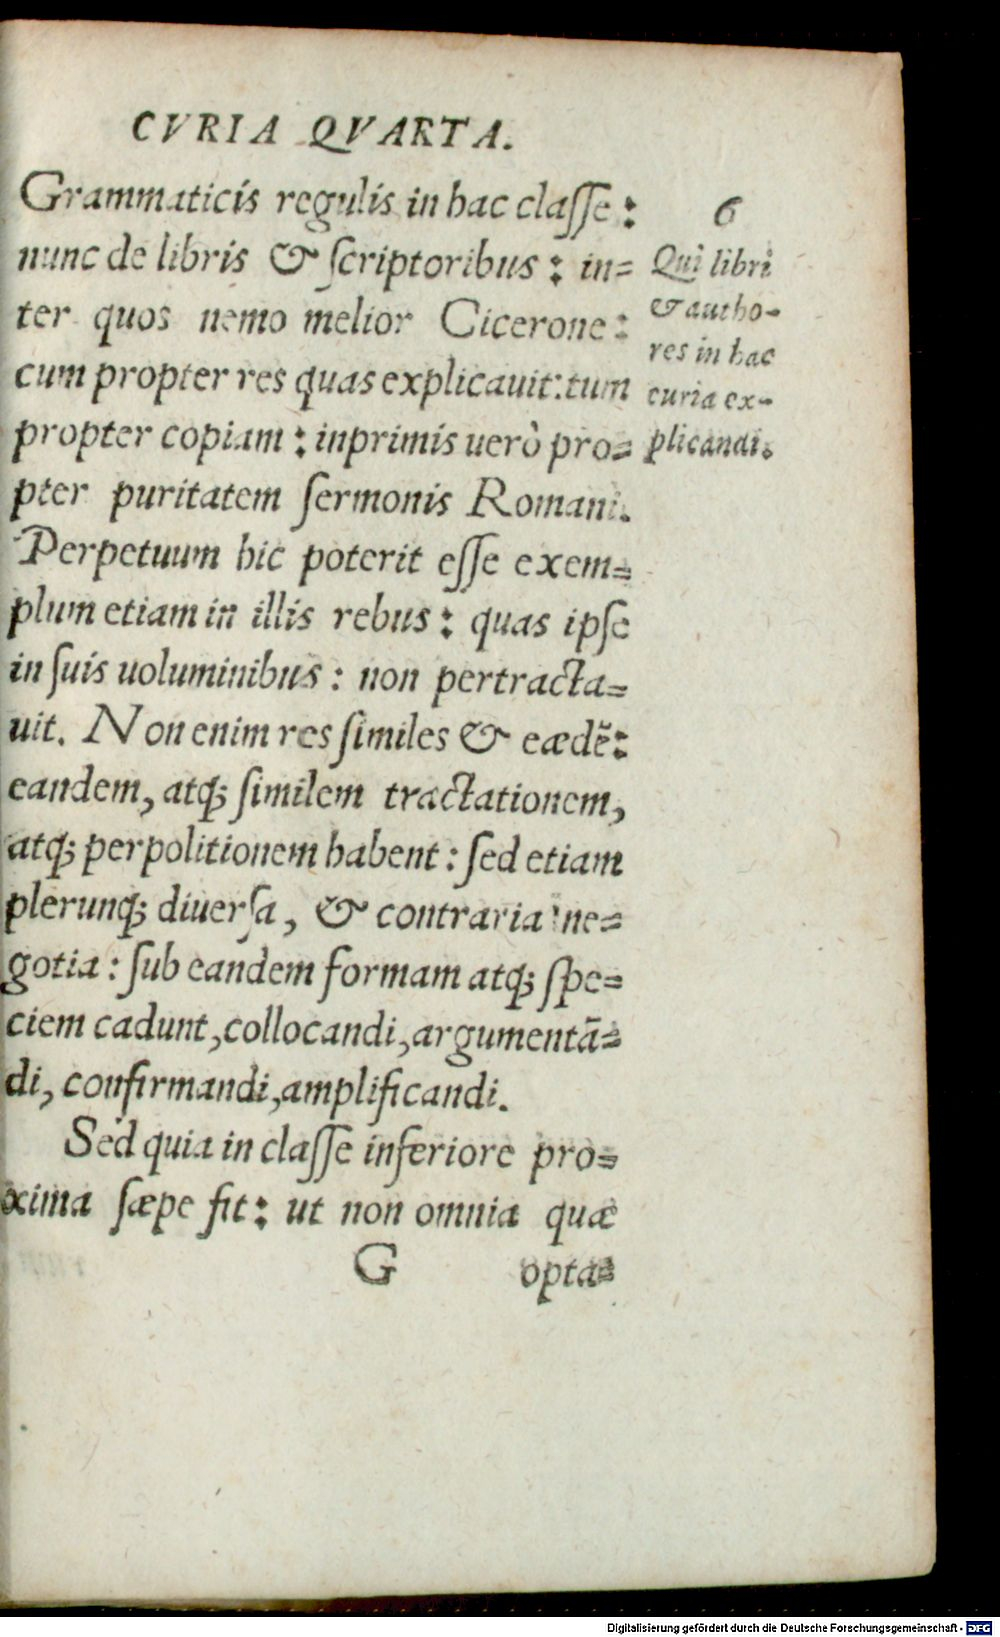 CVRIA QVARTA.
Grammaticis regulis in hac claſſe:
nunc de libris & ſcriptoribus: in=
ter quos nemo melior Cicerone:
cum propter res quas explicauit: tum
propter copiam: inprimis uerò pro=
pter puritatem ſermonis Romani.
Perpetuum hic poterit eſſe exem=
plum etiam in illis rebus: quas ipſe
in ſuis uoluminibus: non pertracta=
uit. Non enim res ſimiles & eædẽ:
eandem, atq; ſimilem tractationem,
atq; perpolitionem habent: ſed etiam
plerunq; diuerſa, & contraria ne=
gotia: ſub eandem formam atq; ſpe=
ciem cadunt, collocandi, argumentā=
di, confirmandi, amplificandi.
Sed quia in claſſe inferiore pro=
xima ſæpe fit: ut non omnia quæ
G opta=
6
Qui libri
& autho=
res in hac
curia ex=
plicandi.
Digitalisierung gefördert durch die Deutsche Forschungsgemeinschaft - DFG